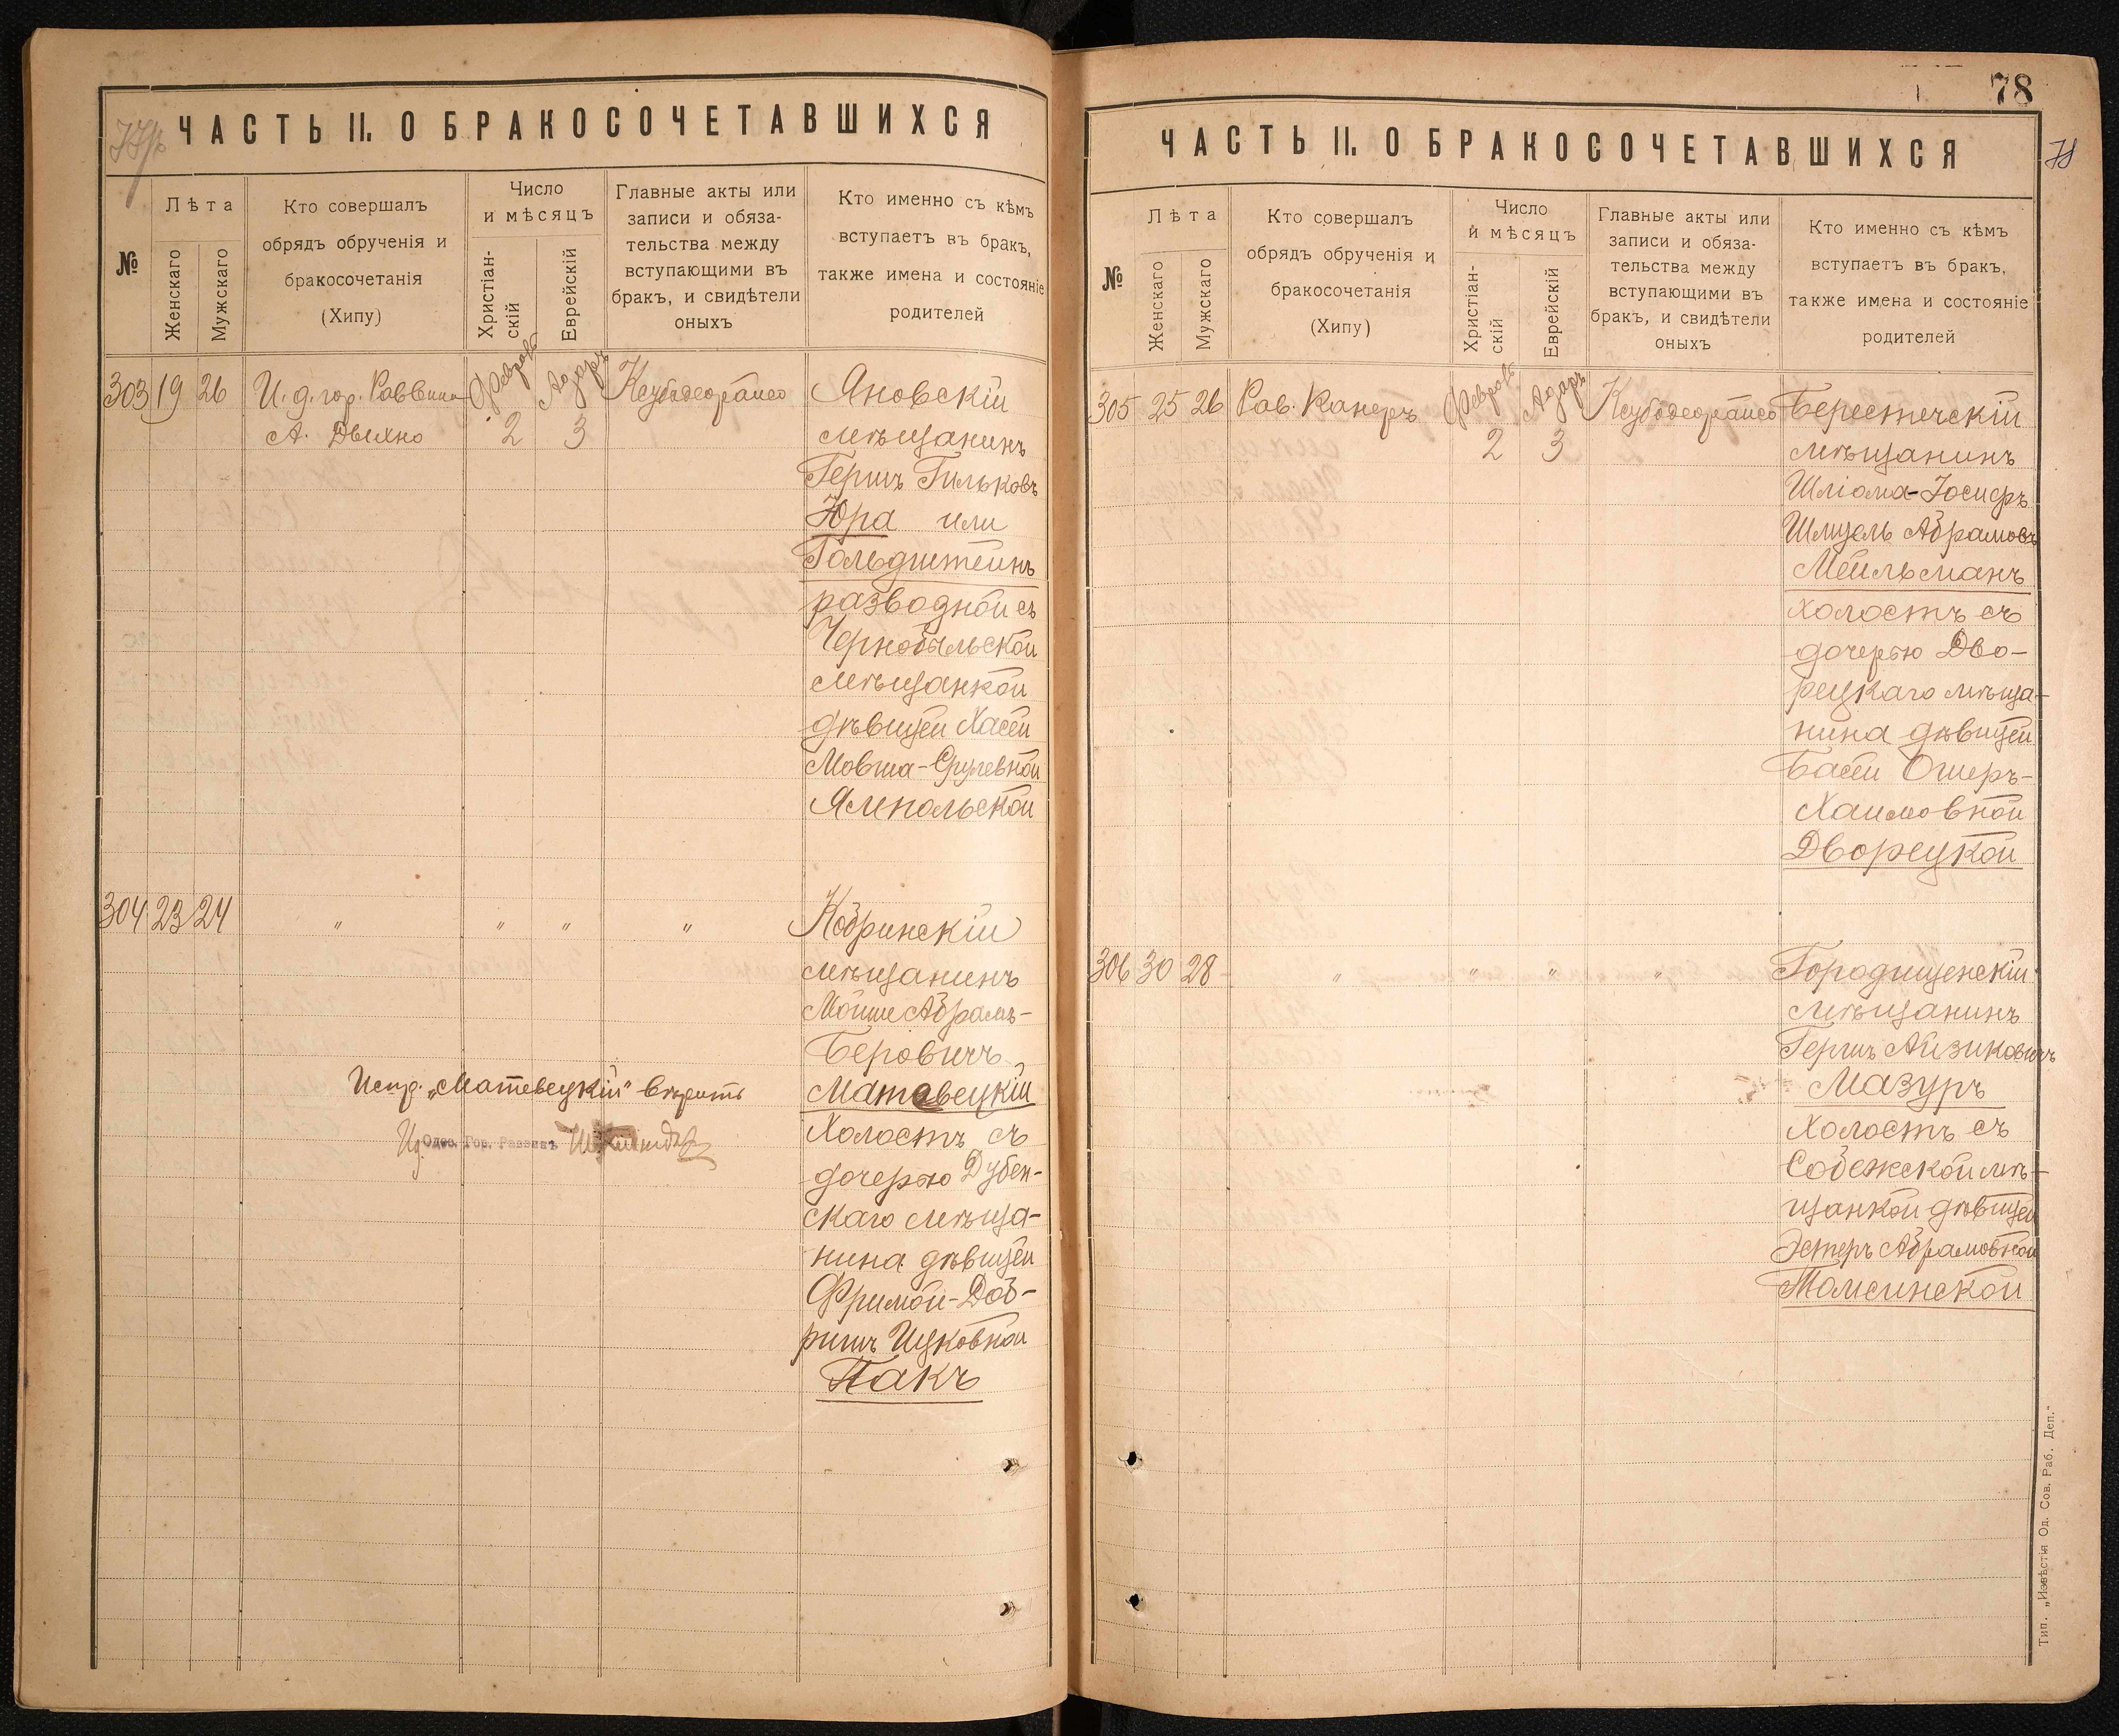 77об
ЧАСТЬ II. О БРАКОСОЧЕТАВШИХСЯ
№
Лѣта
Женскаго
Мужскаго
Кто совершалъ
обрядъ обрученія и
бракосочетанія
(Хипу)
Число
и мѣсяцъ
Христіан-
скій
Еврейскій
Главные акты или
записи и обяза-
тельства между
вступающими въ
бракъ, и свидѣтели
оныхъ
Кто именно съ кѣмъ
вступаетъ въ бракъ,
также имена и состояніе
родителей
303 19 26 И. д. гор. Раввина Февраль Адаръ Яновскій
А. Двихно 2 3 мѣщанинъ
Гершъ Гильковъ
Юра или
Гольдштейнъ
разводной съ
Чернобыльской
мѣщанкой
дѣвицей Хасей
Мовша-Срулевной
Ямпольской
304 23 24 " " " " Кобринскій
мѣщанинъ
Мойше Абрамъ-
Беровичъ
Испр. „Матевецкій" вѣрить Матевецкій
Одес. Гор. Раввинъ Холостъ съ
дочерью Дубен-
скаго мѣща-
нина дѣвицей
Фримой-Доб-
ришъ Ицковной
Пакъ
78
78
ЧАСТЬ II. О БРАКОСОЧЕТАВШИХСЯ
№
Лѣта
Женскаго
Мужскаго
Кто совершалъ
обрядъ обрученія и
бракосочетанія
(Хипу)
Число
и мѣсяцъ
Христіан-
скій
Еврейскій
Главные акты или
записи и обяза-
тельства между
вступающими въ
бракъ, и свидѣтели
оныхъ
Кто именно съ кѣмъ
вступаетъ въ бракъ,
также имена и состояніе
родителей
305 25 26 Рав. Канеръ Февраль Адаръ Берестечскій
2 3 мѣщанинъ
Шліома-Іосифъ
Шмуель Абрамовъ
Мейльманъ
холостъ съ
дочерью Дво-
рецкаго мѣща-
нина дѣвицей
Басей Ошеръ-
Хаимовной
Дворецкой
306 30 28 " " " " Городищенскій
мѣщанинъ
Гершъ Айзиковичъ
Мазуръ
Холостъ съ
Собежской мѣ-
щанкой дѣвицей
Эстеръ Абрамовной
Томсинской
Тип. „Извѣстія Од. Сов. Раб. Деп."